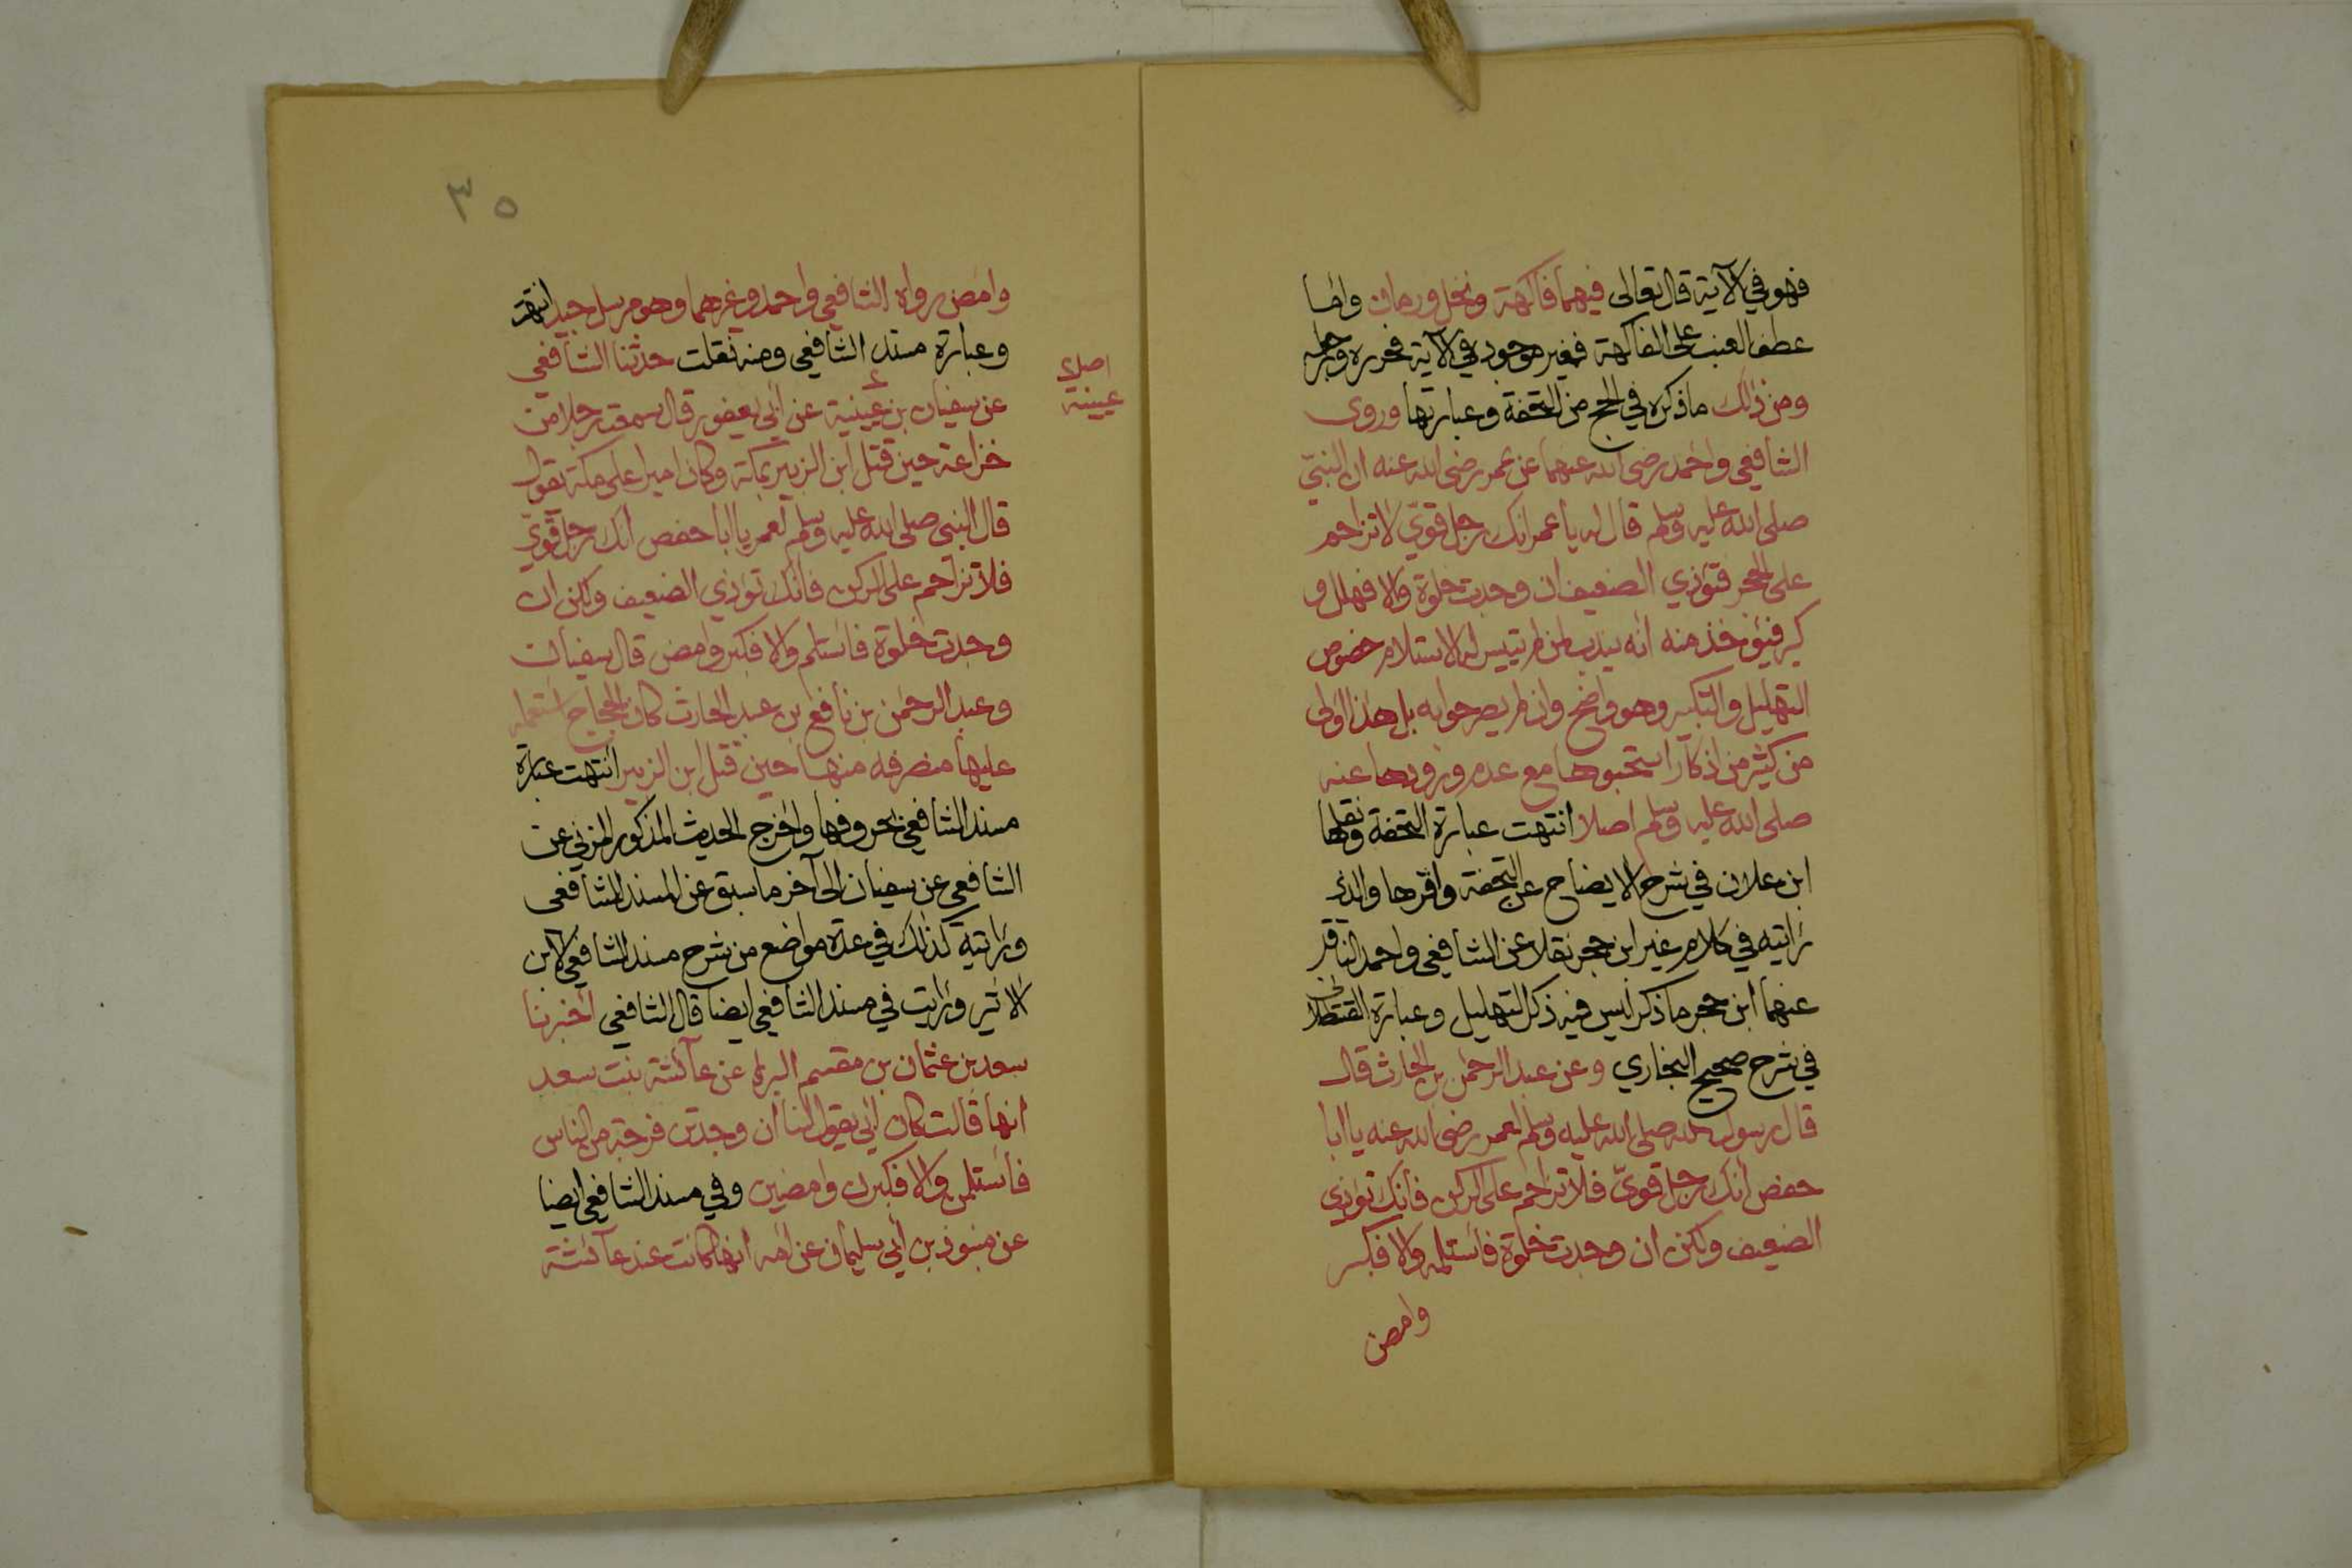 فهو في الآية قال تعالى فيهما فاكهة ونخل ورمان واما
عطف العنب على الفاكهة فغير موجود في الآية فحرره وراجعه
ومن ذلك ما ذكره في الحج من التحفة وعبارتها وروى
الشافعي واحمد رضى الله عنهما عن عمر رضى الله عنه ان النبيّ
صلى الله عليه وسلم قال له يا عمر انك رجل قويّ لا تزاحم
على الحجر فتؤذي الضعيف ان وجدت خلوة والا فهلل و
كبر فيؤخذ منه انه يندب لمن لم يتيسر له الاستلام خصوص
التهليل والتكبير وهو واضح وان لم يصرحوا به بل هذا اولى
من كثير من اذكار استحبوها مع عدم ورودها عنه
صلى الله عليه وسلم اصلا انتهت عبارة التحفة ونقلها
ابن علان في شرح الايضاح عن التحفة واقرها والذى
رايته في كلام غير ابن حجر نقلا عن الشافعي واحمد الناقل
عنهما ابن حجر ما ذكر ليس فيه ذكر التهليل وعبارة القسطلانى
في شرح صحيح البخاري وعن عبد الرحمن بن الحارث قال
قال رسول الله صلى الله عليه وسلم لعمر رضى الله عنه يا ابا
حفص انك رجل قويّ فلا تزاحم على الركن فانك تؤذي
الضعيف ولكن ان وجدت خلوة فاستلمه والا فكبر
وامض
٣٥
وامض رواه الشافعي واحمد وغيرهما وهو مرسل جيد انتهت
وعبارة مسند الشافعي ومنه نقلت حدثنا الشافعي
عن سفيان بن عيينية عن ابي يعفور قال سمعت رجلا من
اصلاح
عيينة
خزاعة حين قتل ابن الزبير بمكة وكان اميرا على مكة يقول
قال النبي صلى الله عليه وسلم لعمر يا ابا حفص انك رجل قويّ
فلا تزاحم على الركن فانك تؤذي الضعيف ولكن ان
وجدت خلوة فاستلم والا فكبر وامض قال سفيان
وعبد الرحمن بن نافع بن عبد الحارث كان الحجاج استعمله
عليها منصرفه منها حين قتل ابن الزبير انتهت عبارة
مسند الشافعي بحروفها واخرج الحديث المذكور المزني عن
الشافعي عن سفيان الى آخر ما سبق عن المسند للشافعى
ورايته كذلك في عدة مواضع من شرح مسند الشافعي لابن
الاثير ورايت في مسند الشافعي ايضا قال الشافعي اخبرنا
سعد بن عثمان بن مقسم البري عن عآئشة بنت سعد
انها قالت كان ابي يقول لنا ان وجدتن فرجة من الناس
فاستلمن والا فكبرن وامضين وفي مسند الشافعي ايضا
عن منبوذ بن ابي سليمان عن امه انها كانت عند عآئشة